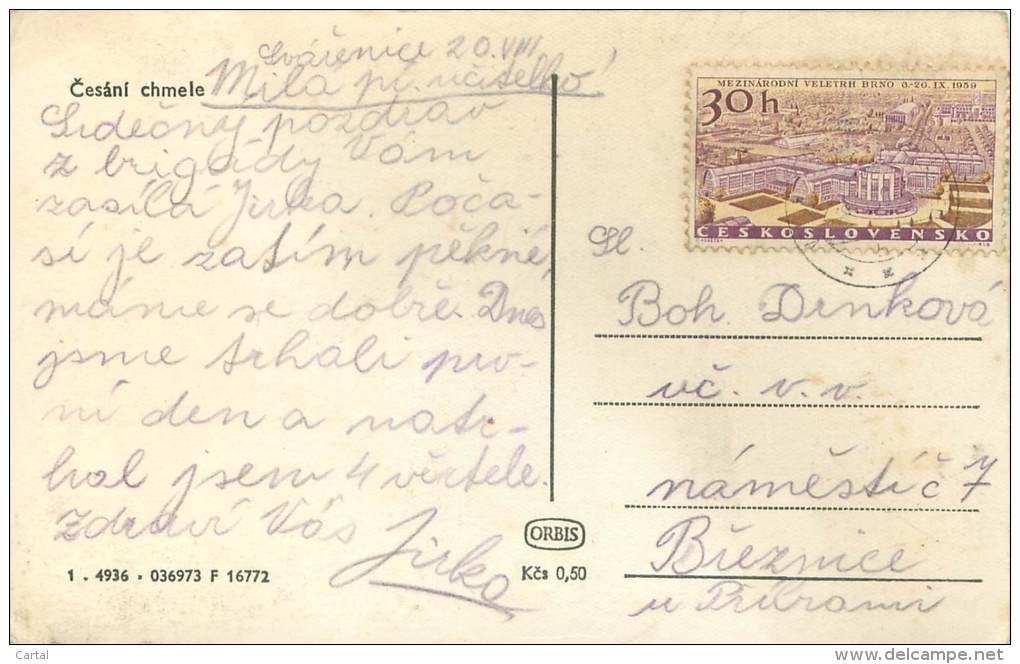 Svářenice 20. VIII
Česání chmele
Milá pí. učitelko!
Srdečný pozdrav
z brigády Vám
zasílá Jirka. Poča-
sí je zatím pěkné,
máme se dobře. Dnes
jsme trhali prv-
ní den a natr-
hal jsem 4 věrtele.
Zdraví Vás
Jirka
1 . 4936 - 036973 F 16772
ORBIS
Kčs 0,50
MEZINÁRODNÍ VELETRH BRNO 6.-20. IX. 1959
30h
ČESKOSLOVENSKO
Sl.
Boh. Drnková
uč. v. v.
náměstí č 7
Březnice
u Příbrami
Cartal
delcampe.net